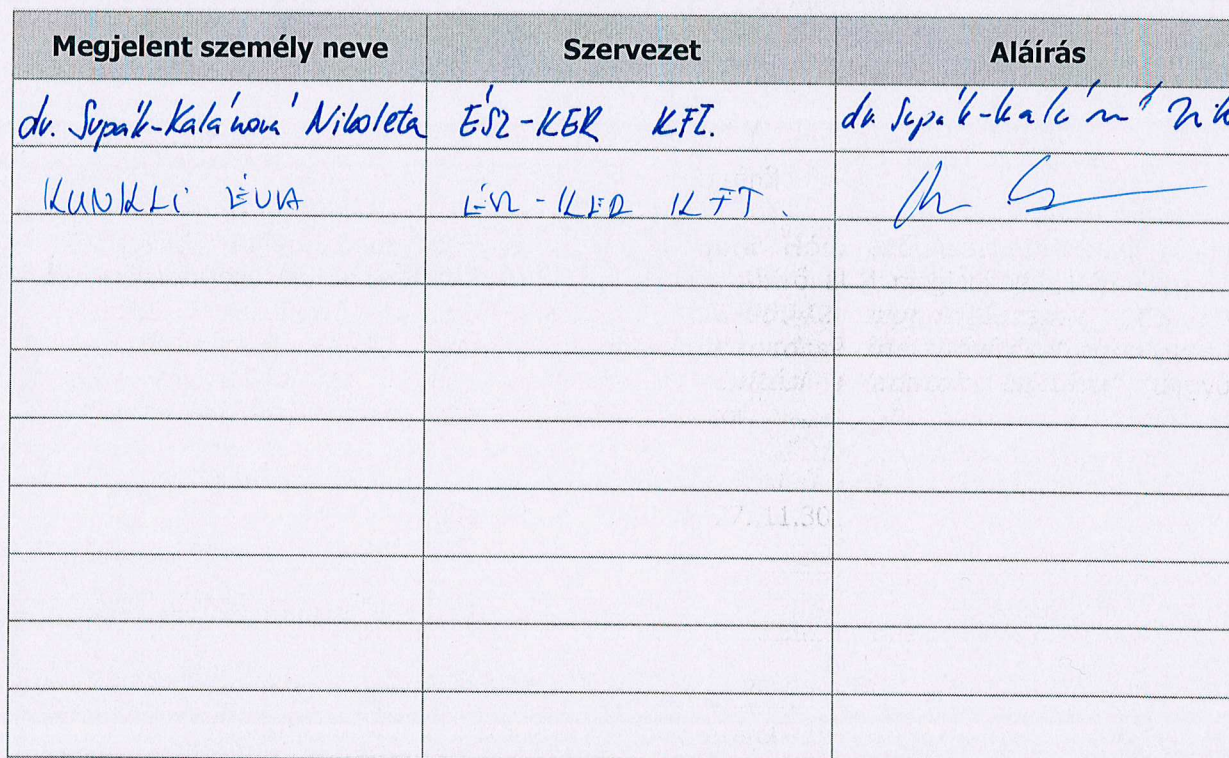 Megjelent személy neve Szervezet Aláírás
dr. Supák-Kalánová Nikoleta ÉSZ-KER KFT. dr. Supák-Kalánová Nik
KUNKLI ÉVA ÉSZ-KER KFT.
11.30